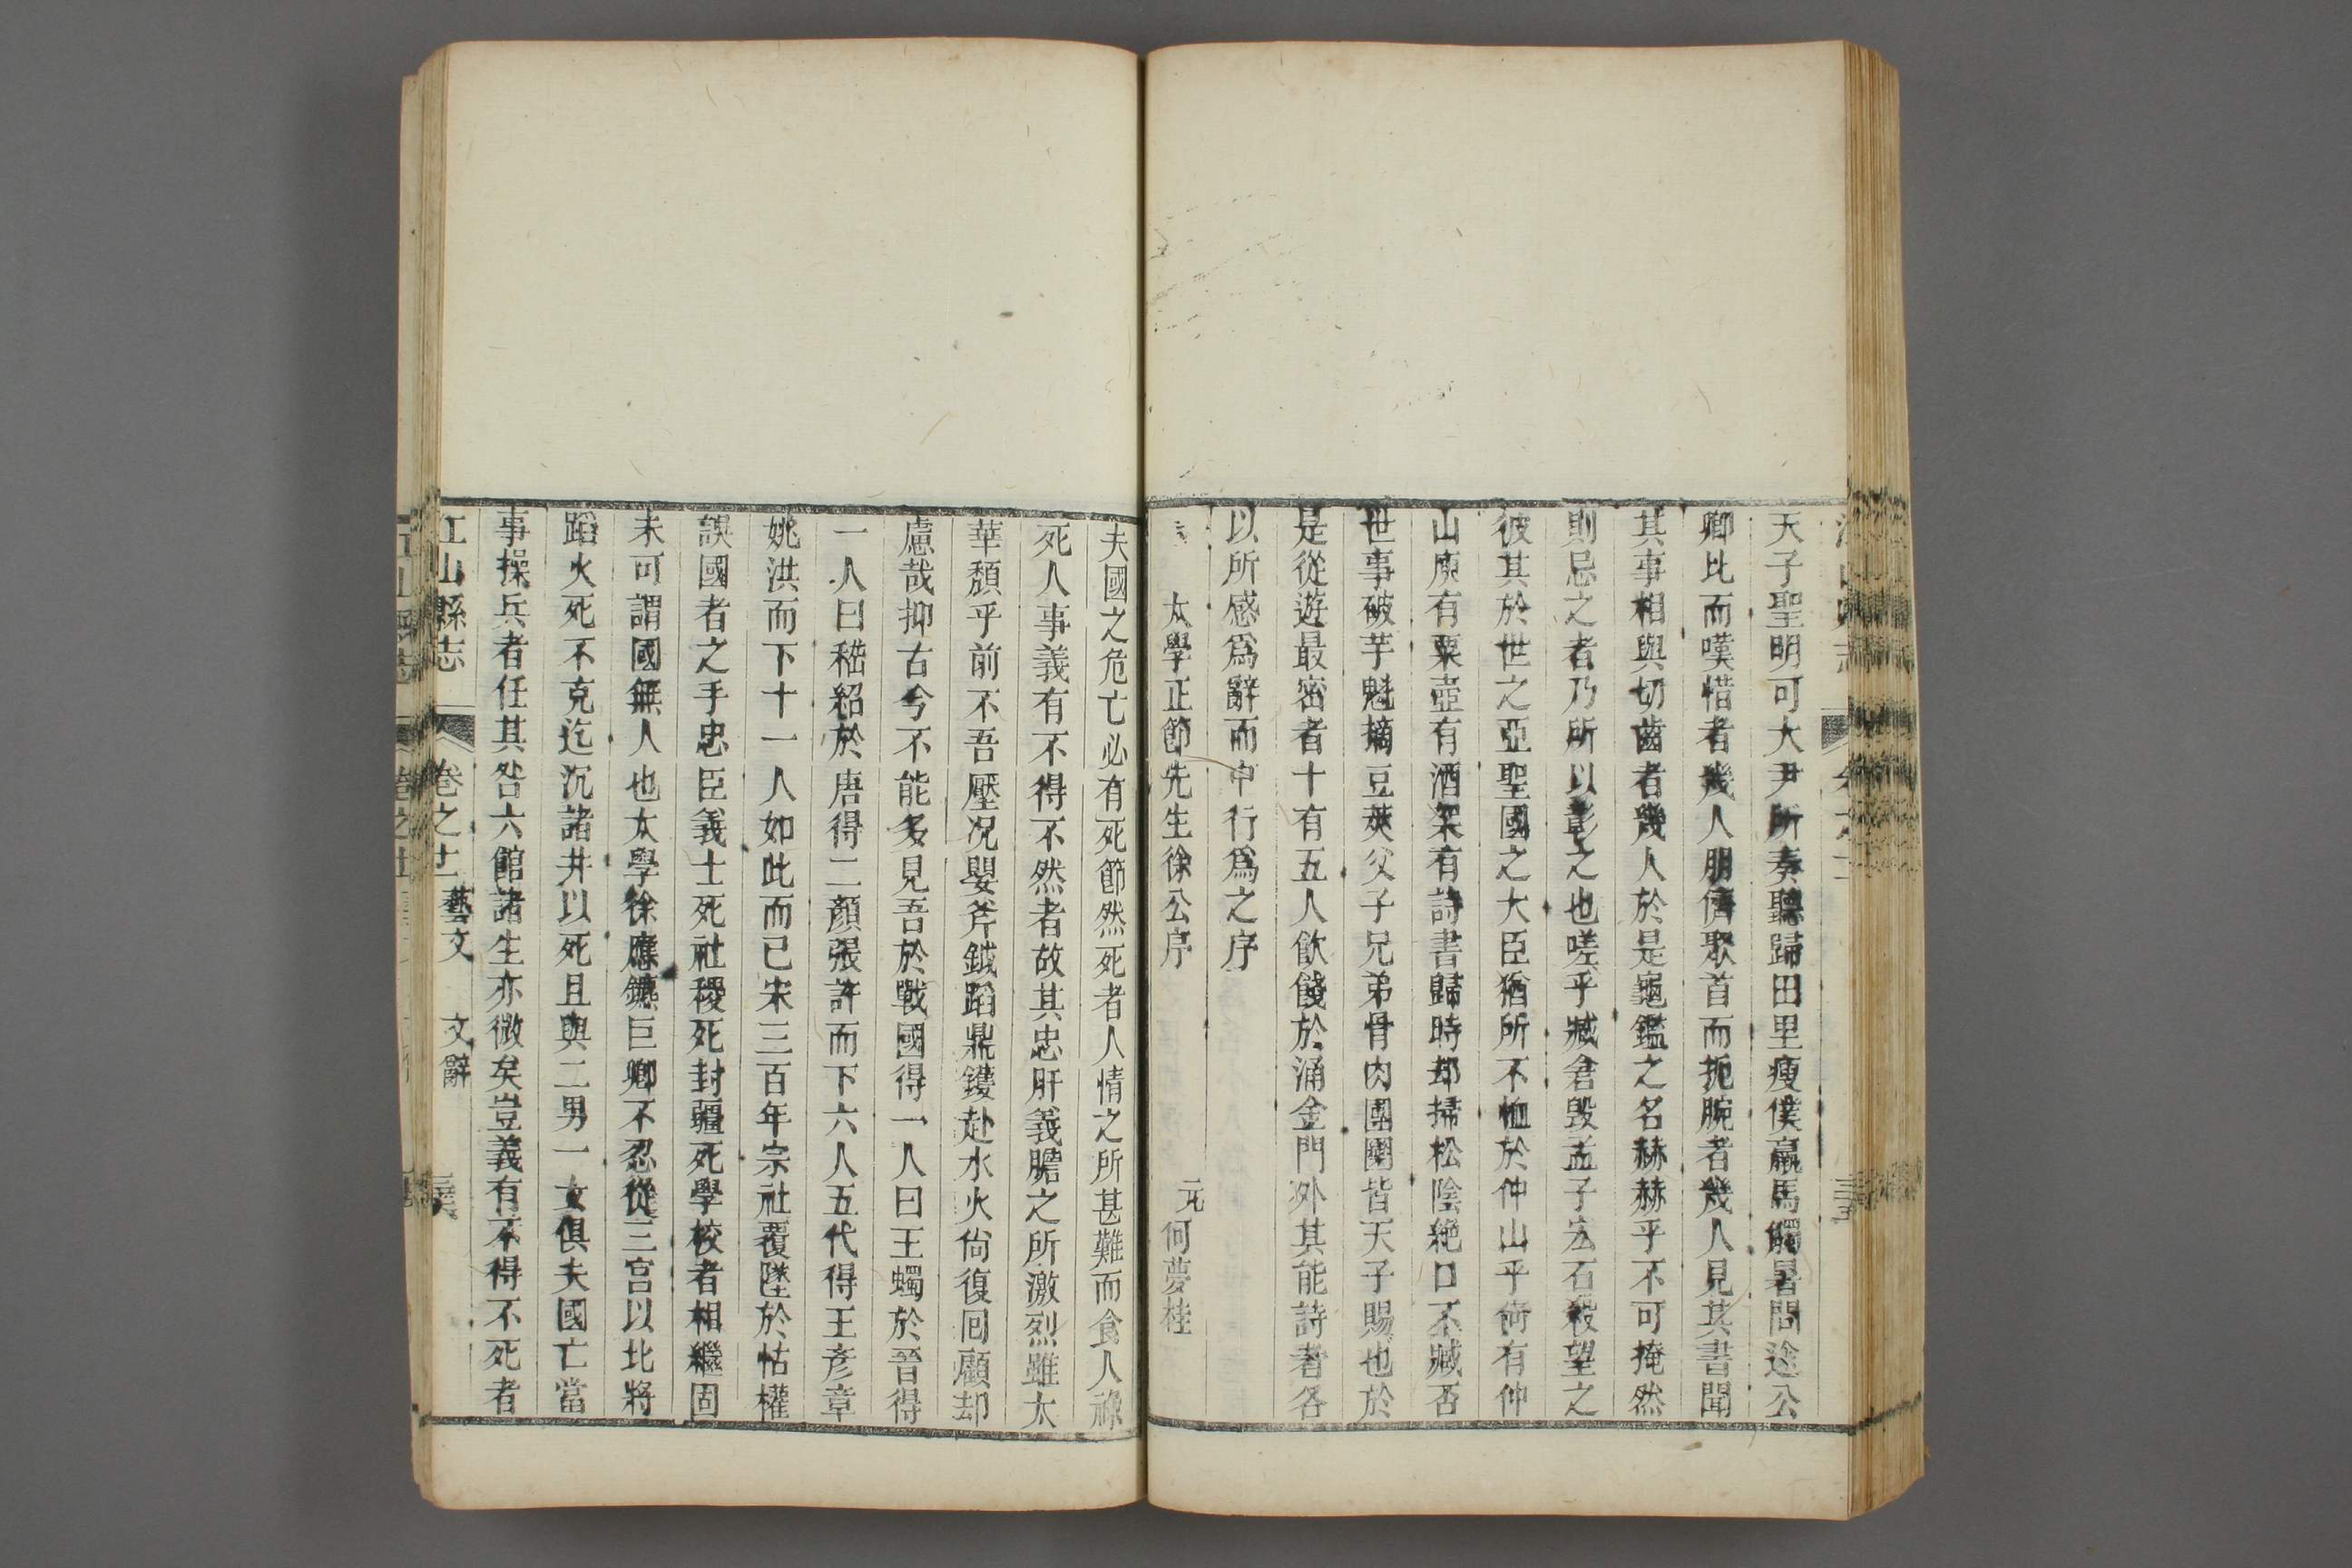 天子聖明可大尹所奏聽歸田里瘦僕羸馬觸暑問途公
卿比而嘆惜者幾人朋儕聚首而扼腕者幾人見其書聞
其事相與切齒者幾人於是龜鑑之名赫赫乎不可掩然
則忌之者乃所以彰之也嗟乎臧倉毀孟子宏石殺望之
彼其於世之亞聖國之大臣猶所不恤於仲山乎何有仲
山廩有粟壺有酒架有詩書歸時却掃松陰絕口不臧否
世事破芋魁摘豆莢父子兄弟骨肉團圞皆天子賜也於
是從遊最密者十有五人飲餞於涌金門外其能詩者各
以所感爲辭而申行爲之序
太學正節先生徐公序 元何夢桂
夫國之危亡必有死節然死者人情之所甚難而食人祿
死人事義有不得不然者故其忠肝義膽之所激烈雖太
華頹乎前不吾壓況嬰斧鉞蹈鼎鑊赴水火尙復回顧却
慮哉抑古今不能多見吾於戰國得一人曰王蠋於晉得
一人曰嵇紹於唐得二顏張許而下六人五代得王彥章
姚洪而下十一人如此而已宋三百年宗社覆墜於怙權
誤國者之手忠臣義士死社稷死封疆死學校者相繼固
未可謂國無人也太學徐應鑣巨卿不忍從三宮以北將
蹈火死不克迄沉諸井以死且與二男一女俱夫國亡當
事操兵者任其咎六館諸生亦微矣豈義有不得不死者
江山縣志 卷之十二 藝文 文辭